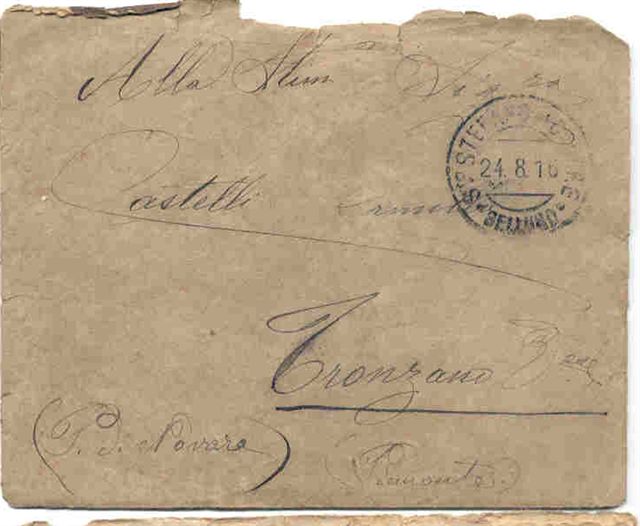 Alla Stim Sig.ra
Castelli
Tronzano
(P. di Novara)
(Piemonte)
24.8.16
BELLUNO